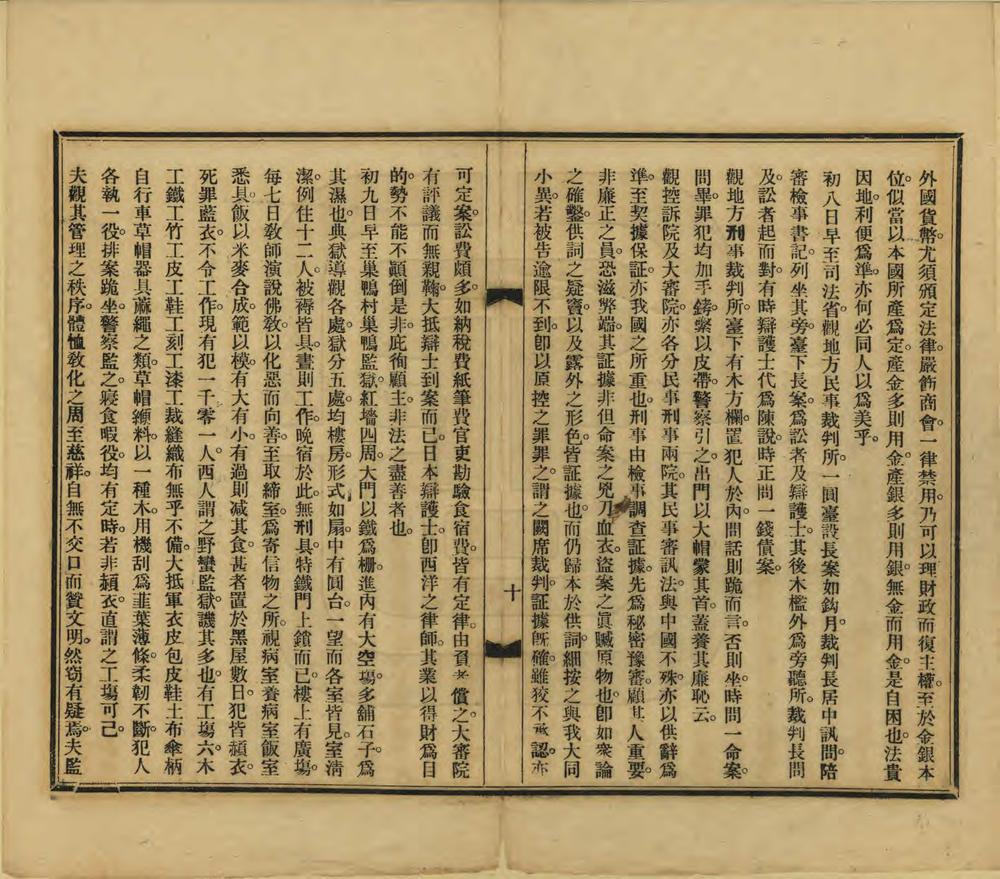 外國貨幣。尤須頒定法律。嚴飭商會。一律禁用。乃可以理財政而復主權。至於金銀本
位。似當以本國所產爲定。產金多則用金。產銀多則用銀。無金而用金。是自困也。法貴
因地。利便爲準。亦何必同人以爲美乎。
初八日早至司法省。觀地方民事裁判所。一圓臺設長案如鈎月。裁判長居中訊問。陪
審檢事書記。列坐其旁。臺下長案。爲訟者及辯護士。其後木檻外爲旁聽所。裁判長問
及。訟者起而對。有時辯護士代爲陳說。時正問一錢債案。
觀地方刑事裁判所。臺下有木方欄。置犯人於內。問話則跪而言。否則坐。時問一命案。
問畢罪犯均加手銬。縈以皮帶。警察引之。出門以大帽蒙其首。蓋養其廉恥云。
觀控訴院及大審院。亦各分民事刑事兩院。其民事審訊法。與中國不殊。亦以供辭爲
準。至契據保証。亦我國之所重也。刑事由檢事調查証據。先爲秘密豫審。顧其人重要
非廉正之員。恐滋弊端。其証據非但命案之兇刀血衣。盜案之眞贓原物也。卽如衆論
之確鑿。供詞之疑竇。以及露外之形色。皆証據也。而仍歸本於供詞。細按之與我大同
小異。若被告逾限不到。卽以原控之罪罪之。謂之闕席裁判。証據旣確。雖狡不承認。亦
十
可定案。訟費頗多。如納稅費紙筆費官吏勘驗食宿費。皆有定律。由負者償之。大審院
有評議而無親鞫。大抵辯士到案而已。日本辯護士。卽西洋之律師。其業以得財爲目
的。勢不能不顚倒是非。庇徇顧主。非法之盡善者也。
初九日早至巢鴨村巢鴨監獄。紅墻四周。大門以鐵爲柵。進內有大空場。多舖石子。爲
其濕也。典獄導觀各處。獄分五處。均樓房形式如扇。中有圓台。一望而各室皆見。室淸
潔。例住十二人。被褥皆具。晝則工作。晚宿於此。無刑具。特鐵門上鎖而已。樓上有廣塲。
每七日敎師演說佛敎。以化惡而向善。至取締室。爲寄信物之所。視病室養病室飯室
悉具。飯以米麥合成。範以模。有大有小。有過則減其食。甚者置於黑屋數日。犯皆赬衣。
死罪藍衣。不令工作。現有犯一千零一人。西人謂之野蠻監獄。譏其多也。有工塲六。木
工鐵工竹工皮工鞋工刻工漆工裁縫織布無乎不備。大抵軍衣皮包皮鞋土布傘柄
自行車草帽器具蔴繩之類。草帽纇料。以一種木。用機刮爲韮葉薄條。柔韌不斷。犯人
各執一役。排案跪坐。警察監之。寢食暇役。均有定時。若非赬衣。直謂之工塲可已。
夫觀其管理之秩序。體恤敎化之周至慈祥。自無不交口而贊文明。然窃有疑焉。夫監